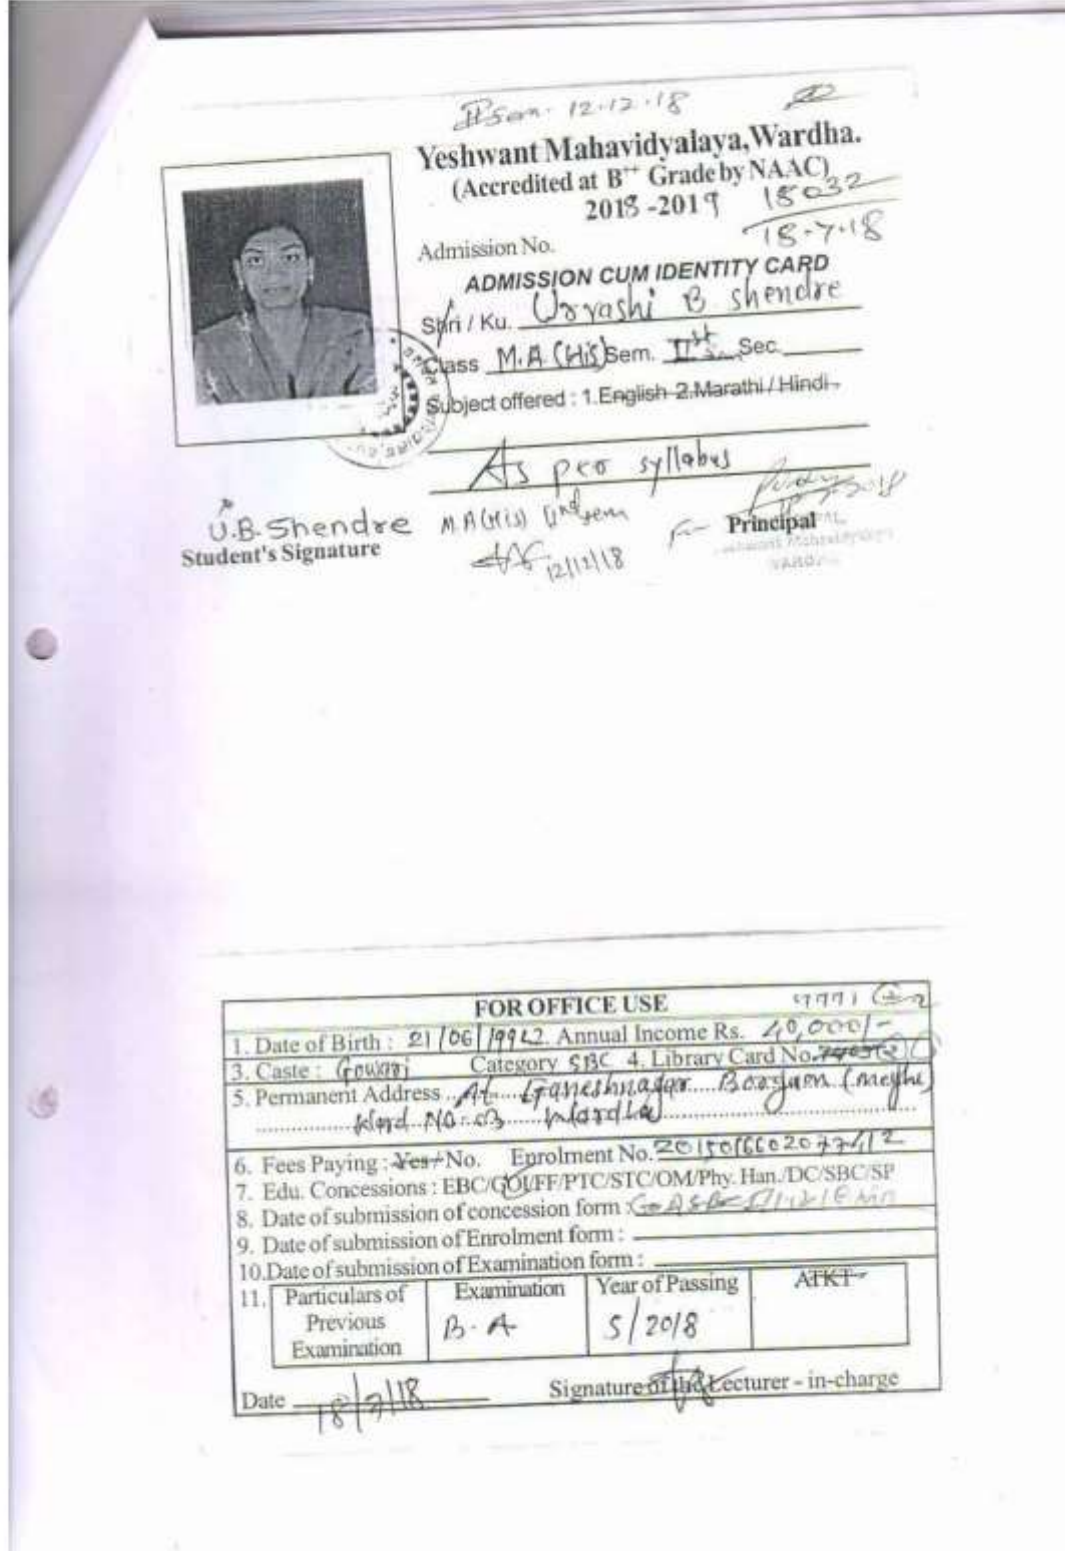 IISem. 12.12.18
Yeshwant Mahavidyalaya,Wardha.
(Accredited at B++ Grade by NAAC)
2018 -2019 18032
18.7.18
Admission No.
ADMISSION CUM IDENTITY CARD
Shri / Ku. Urvashi B shendre
Class M.A (His) Sem. Ist Sec.
Subject offered : 1.English 2.Marathi / Hindi
As per syllabus
U.B. Shendre M.A(His) IInd sem
Student's Signature
12/12/18
Principal
FOR OFFICE USE
1. Date of Birth : 21/06/199 2. Annual Income Rs. 40,000/-
3. Caste : Gowari Category SBC 4. Library Card No.
5. Permanent Address At. Ganeshnagar Borgaon (meghe)
Word No. 03 Wardha
6. Fees Paying : Yes/ No. Enrolment No.
7. Edu. Concessions : EBC/GOI/FF/PTC/STC/OM/Phy. Han./DC/SBC/SP
8. Date of submission of concession form :
9. Date of submission of Enrolment form :
10.Date of submission of Examination form :
11. Particulars of Previous Examination Examination Year of Passing ATKT
B.A 5/2018
Date 18/7/18 Signature of the Lecturer - in-charge